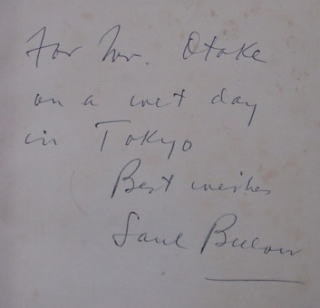 For Mr. Otake
on a wet day
in Tokyo
Best wishes
Saul Bellow